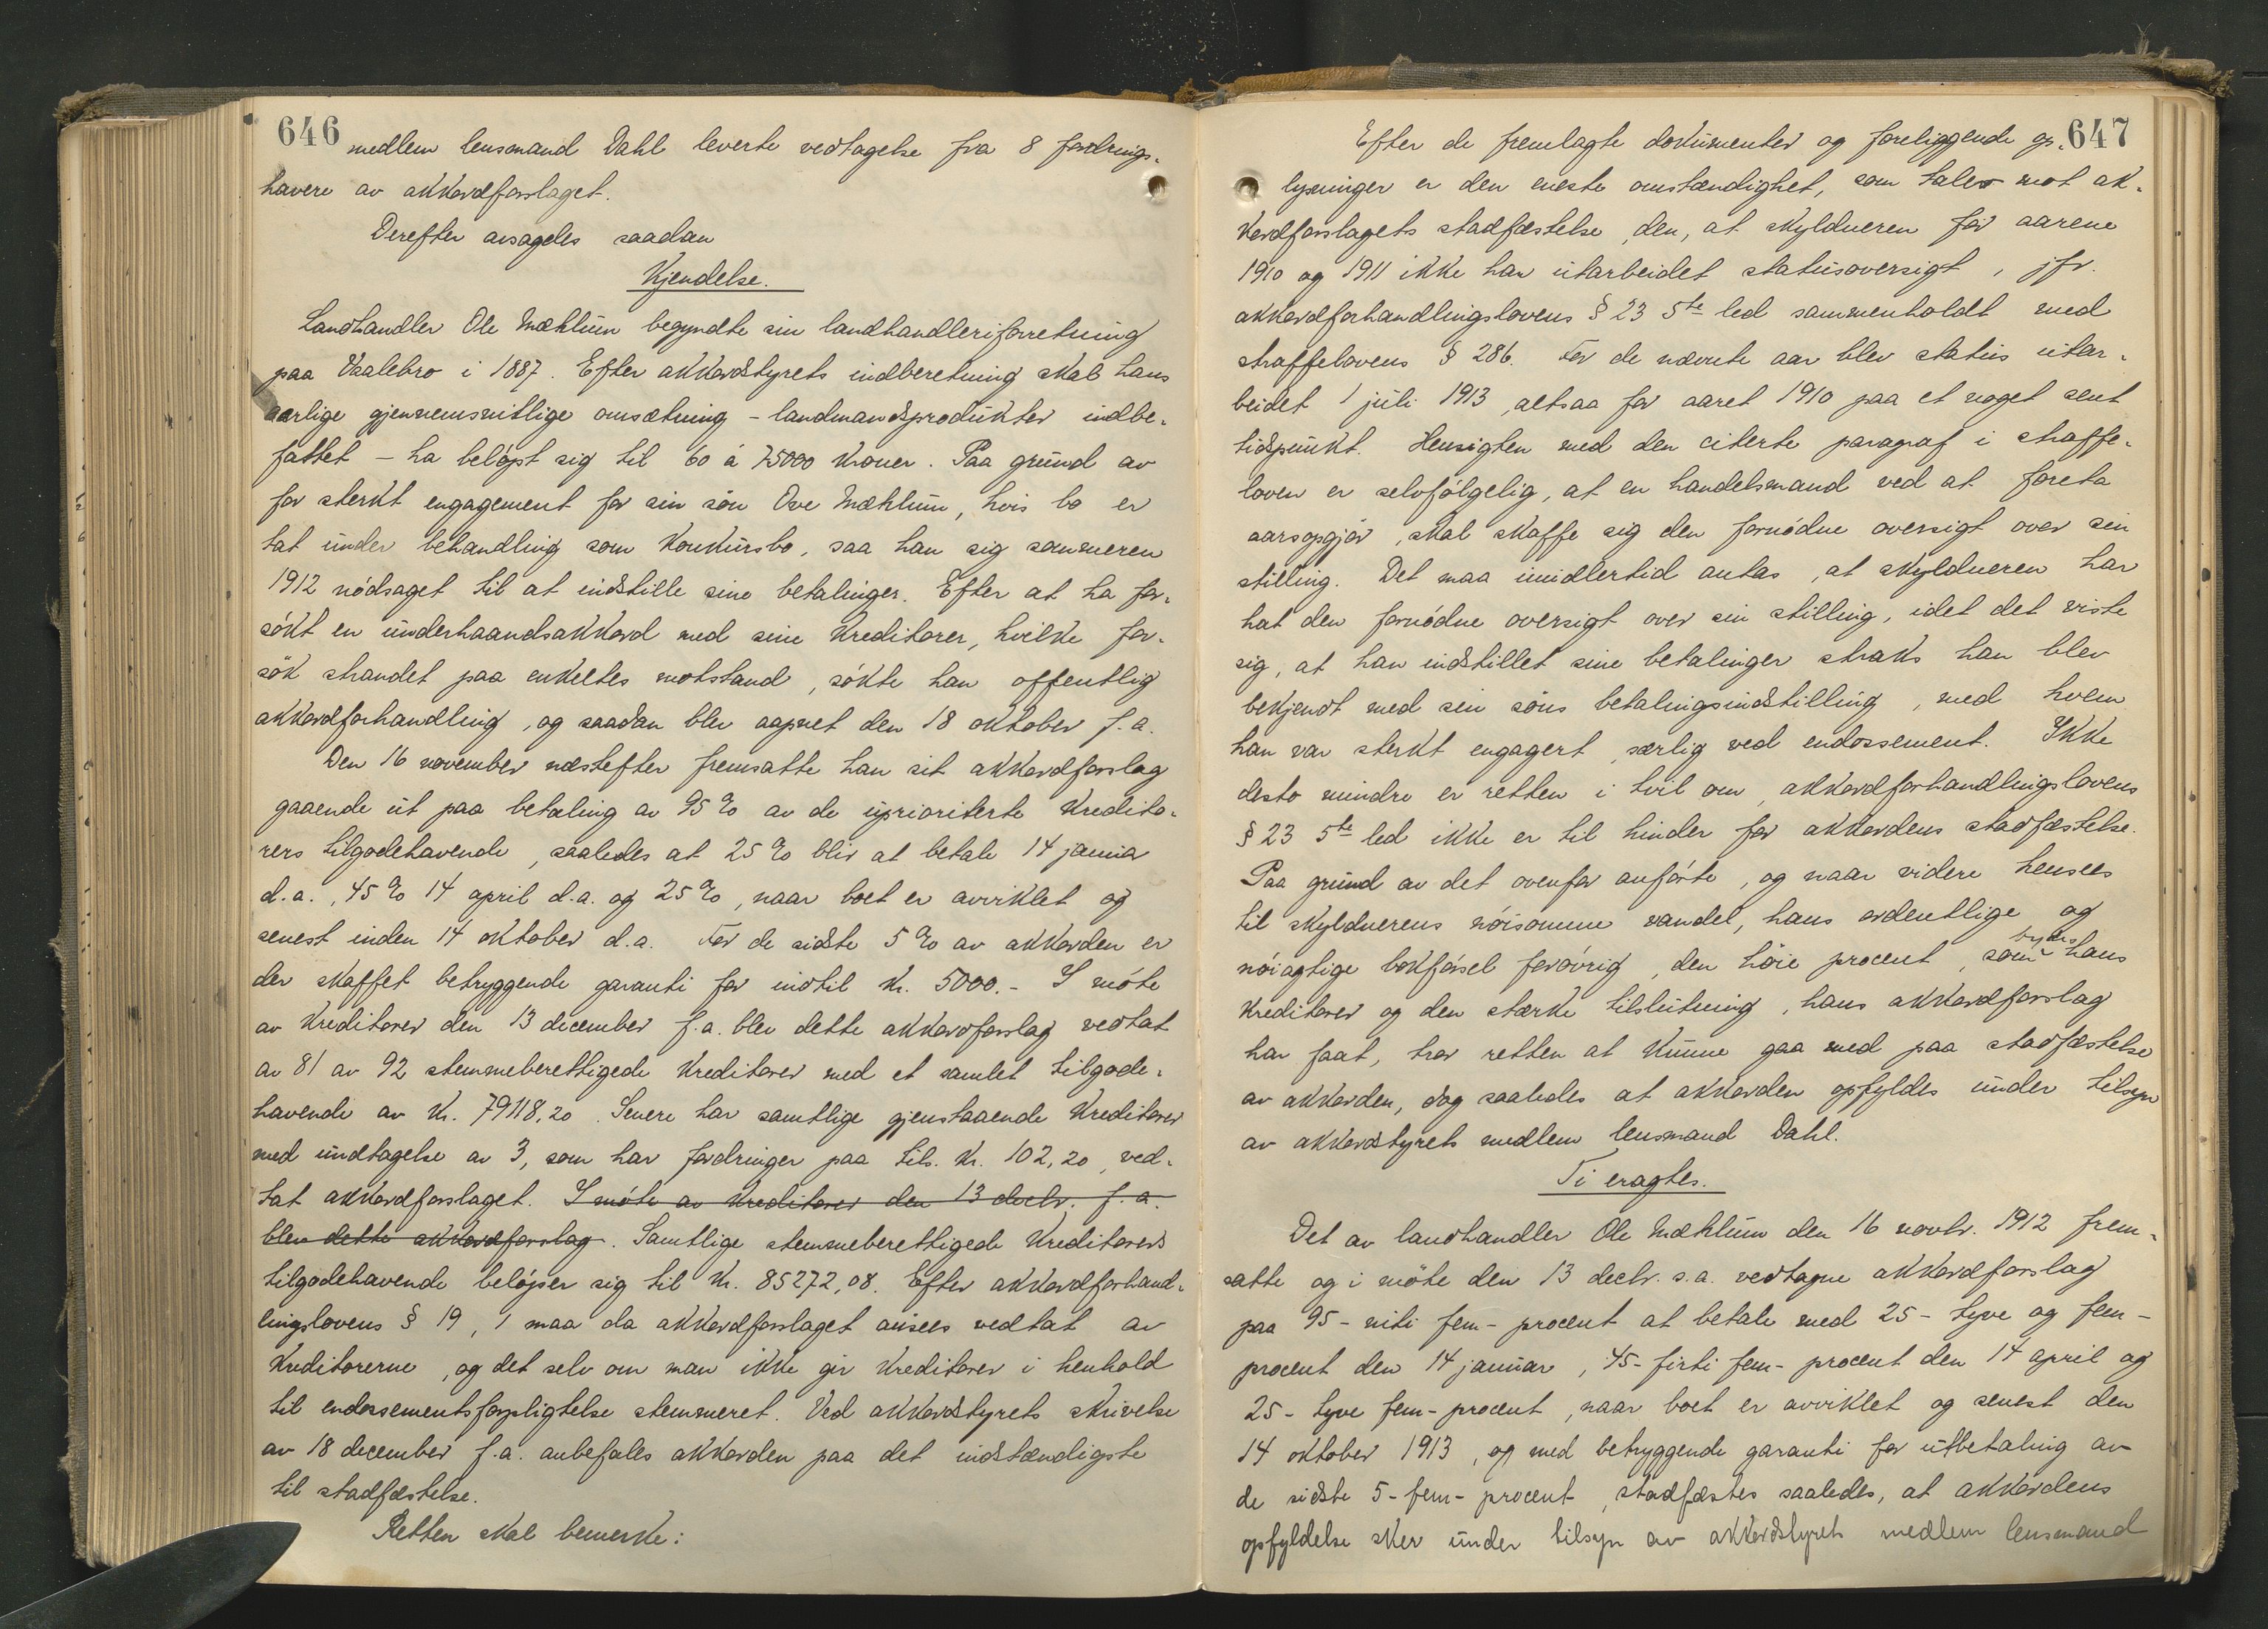 646
medlem lensmand Dahl leverte vedtagelse fra 8 fordrings-
havere av akkordforslaget.
Derefter avsagdes saadan
Kjendelse.
Landhandler Ole Mæhlum begyndte sin landhandleriforretning
paa Vaalebro i 1887. Efter akkordstyrets indberetning skal hans
aarlige gjennemsnitlige omsætning - landmandsprodukter indbe-
fattet - ha beløpt sig til 60 à 75000 kroner. Paa grund av
for sterkt engagement for sin søn Ove Mæhlum, hvis bo er
tat under behandling som konkursbo, saa han sig sommeren
1912 nødsaget til at indstille sine betalinger. Efter at ha for-
søkt en underhaandsakkord med sine kreditorer, hvilke for-
søk strandet paa enkeltes motstand, søkte han offentlig
akkordforhandling, og saadan blev aapnet den 18 oktober f.a.
Den 16 november næstefter fremsatte han sit akkordforslag
gaaende ut paa betaling av 95 % av de uprioriterte kredito-
rers tilgodehavende, saaledes at 25 % blir at betale 14 janua
d.a., 45 % 14 april d.a. og 25 %, naar boet er avviklet og
senest inden 14 oktober d.a. For de sidste 5 % av akkorden er
der skaffet betryggende garanti for indtil kr. 5000.- I møte
av kreditorer den 13 december f.a. blev dette akkordforslag vedtat
av 81 av 92 stemmeberettigede kreditorer med et samlet tilgode-
havende av kr. 79118,20. Senere har samtlige gjenstaaende kreditorer
med undtagelse av 3, som har fordringer paa tils. kr. 102,20, ved-
tat akkordforslaget. I møte av kreditorer den 13 decbr. f.a.
blev dette akkordforslag. Samtlige stemmeberettigede kreditorers
tilgodehavende beløper sig til kr. 85272,08. Efter akkordforhand-
lingslovens § 19, 1 maa da akkordforslaget ansees vedtat av
kreditorerne, og det selv om man ikke gir kreditorer i henhold
til endossementsforpligtelse stemmeret. Ved akkordstyrets skrivelse
av 18 december f.a. anbefales akkorden paa det indstændigste
til stadfæstelse.
Retten skal bemerke:
647
Efter de fremlagte dokumenter og foreliggende op-
lysninger er den eneste omstændighet, som taler mot ak-
kordforslagets stadfæstelse, den, at skyldneren for aarene
1910 og 1911 ikke har utarbeidet statusoversigt, jfr.
akkordforhandlingslovens § 23 5te led sammenholdt med
straffelovens § 286. For de nævnte aar blev status utar-
beidet 1 juli 1913, altsaa for aaret 1910 paa et noget sent
tidspunkt. Hensigten med den citerte paragraf i straffe-
loven er selvfølgelig, at en handelsmand ved at foreta
aarsopgjør, skal skaffe sig den fornødne oversigt over sin
stilling. Det maa imidlertid antas, at skyldneren har
hat den fornødne oversigt over sin stilling, idet det viste
sig, at han indstillet sine betalinger straks han blev
bekjendt med sin søns betalingsindstilling, med hvem
han var sterkt engagert, særlig ved endossement. Ikke
desto mindre er retten i tvil om, akkordforhandlingslovens
§ 23 5te led ikke er til hinder for akkordens stadfæstelse.
Paa grund av det ovenfor anførte, og naar videre hensees
til skyldnerens nøisomme vandel, hans ordentlige og
nøiagtige bokførsel forøvrig, den høie procent, som bydes hans
kreditorer og den stærke tilslutning, hans akkordforslag
har faat, tror retten at kunne gaa med paa stadfæstelse
av akkorden, dog saaledes at akkorden opfyldes under tilsyn
av akkordstyrets medlem lensmand Dahl.
Ti eragtes.
Det av landhandler Ole Mæhlum den 16 novbr. 1912 frem-
satte og i møte den 13 decbr. s.a. vedtagne akkordforslag
paa 95 - niti fem - procent at betale med 25 - tyve og fem -
procent den 14 januar, 45 - firti fem - procent den 14 april og
25 - tyve fem - procent, naar boet er avviklet og senest den
14 oktober 1913, og med betryggende garanti for utbetaling av
de sidste 5 - fem - procent, stadfæstes saaledes, at akkordens
opfyldelse sker under tilsyn av akkordstyrets medlem lensmand